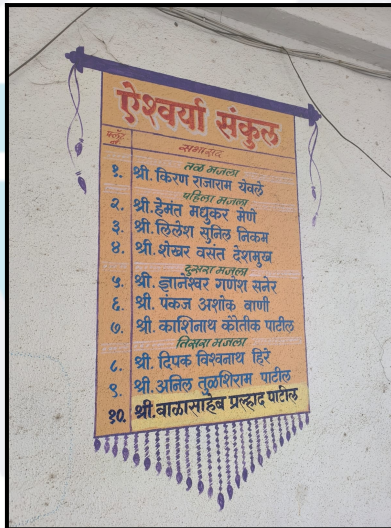 ऐश्वर्या संकुल
फ्लॅट नं. सभासद
तळ मजला
१. श्री. किरण राजाराम येवले
पहिला मजला
२. श्री. हेमंत मधुकर मेणे
३. श्री. लिलेश सुनिल निकम
४. श्री. शेखर वसंत देशमुख
दुसरा मजला
५. श्री. ज्ञानेश्वर गणेश सनेर
६. श्री. पंकज अशोक वाणी
७. श्री. काशिनाथ कौतीक पाटील
तिसरा मजला
८. श्री. दिपक विश्वनाथ हिरे
९. श्री. अनिल तुळशिराम पाटील
१०. श्री. बाळासाहेब प्रल्हाद पाटील